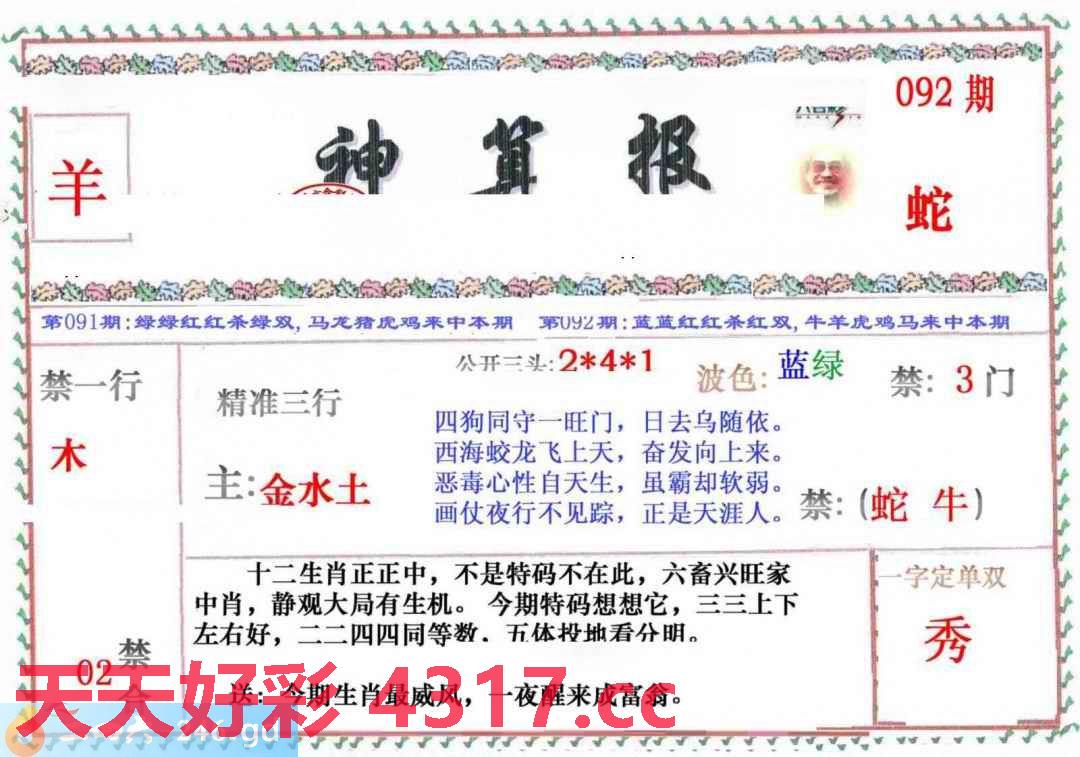 092 期
羊
神 算 报
蛇
第091期:绿绿红红杀绿双,马龙猪虎鸡来中本期
第092期:蓝蓝红红杀红双,牛羊虎鸡马来中本期
禁一行
木
精准三行
主:金水土
公开三头:2*4*1
波色:蓝绿
禁: 3门
四狗同守一旺门，日去乌随依。
西海蛟龙飞上天，奋发向上来。
恶毒心性自天生，虽霸却软弱。
画仗夜行不见踪，正是天涯人。
禁:(蛇 牛)
十二生肖正正中，不是特码不在此，六畜兴旺家
中肖，静观大局有生机。 今期特码想想它，三三上下
左右好，二二四四同等数，五体投地看分明。
送：今期生肖最威风，一夜醒来成富翁。
一字定单双
秀
禁
02
天天好彩 4317.cc